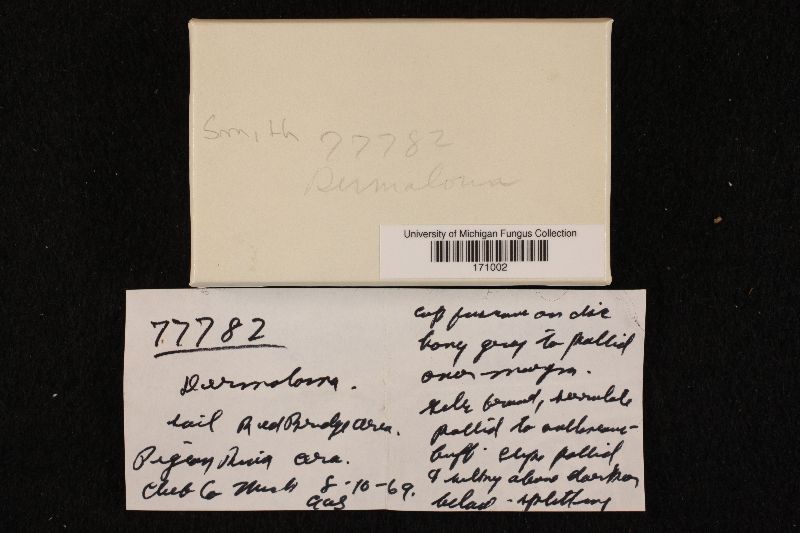 Smith 77782
Dermoloma
University of Michigan Fungus Collection
171002
77782
Dermoloma.
soil Red Bridge area.
Pigeon River area.
Cheb Co Mich 8-10-69.
AHS
cap fuscous on disc
bony gray to pallid
over margin.
Gills broad, serrulate
pallid to
buff. Stipe pallid
& silky above darker
below - splitting